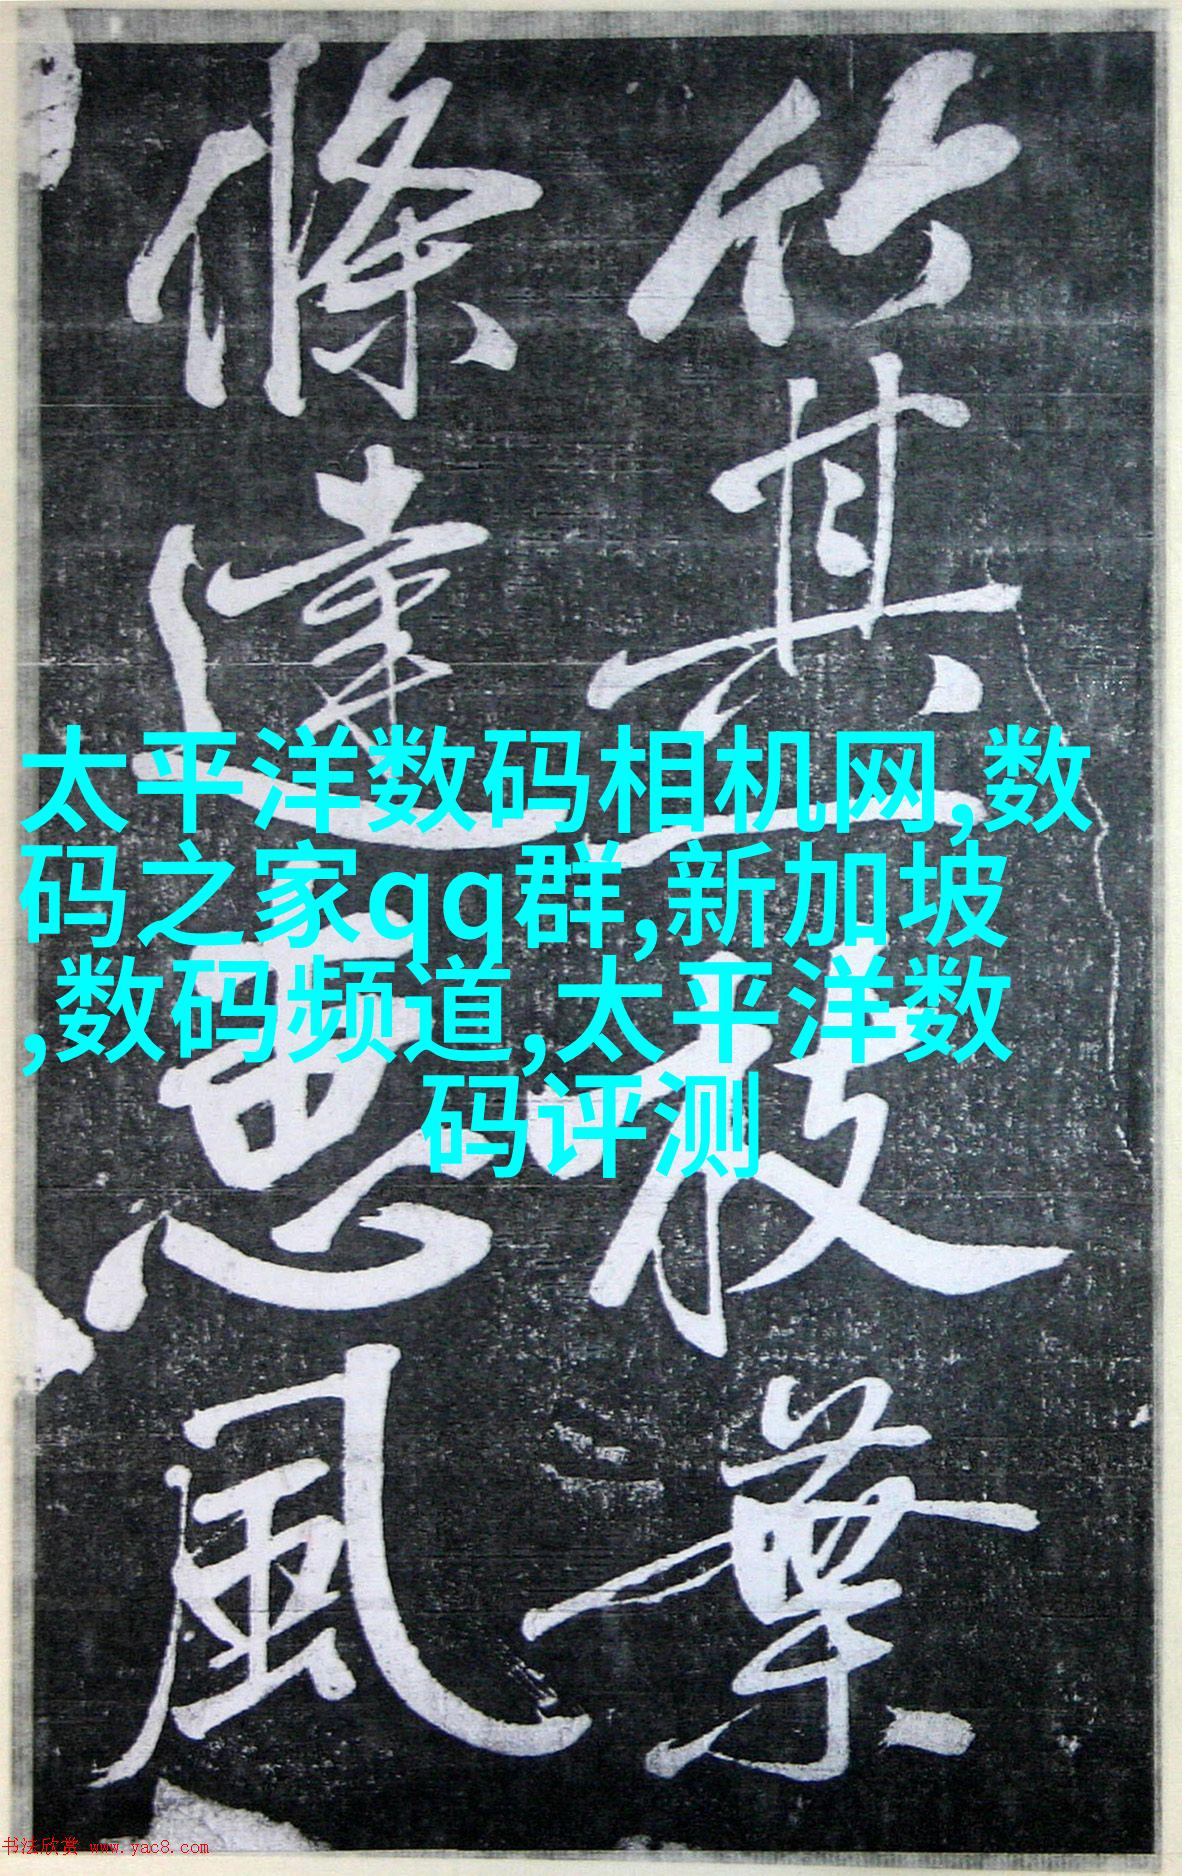 竹其枝葉
條達惠風
太平洋数码相机网,数
码之家qq群,新加坡
,数码频道,太平洋数
码评测
书法欣赏 www.yac8.com